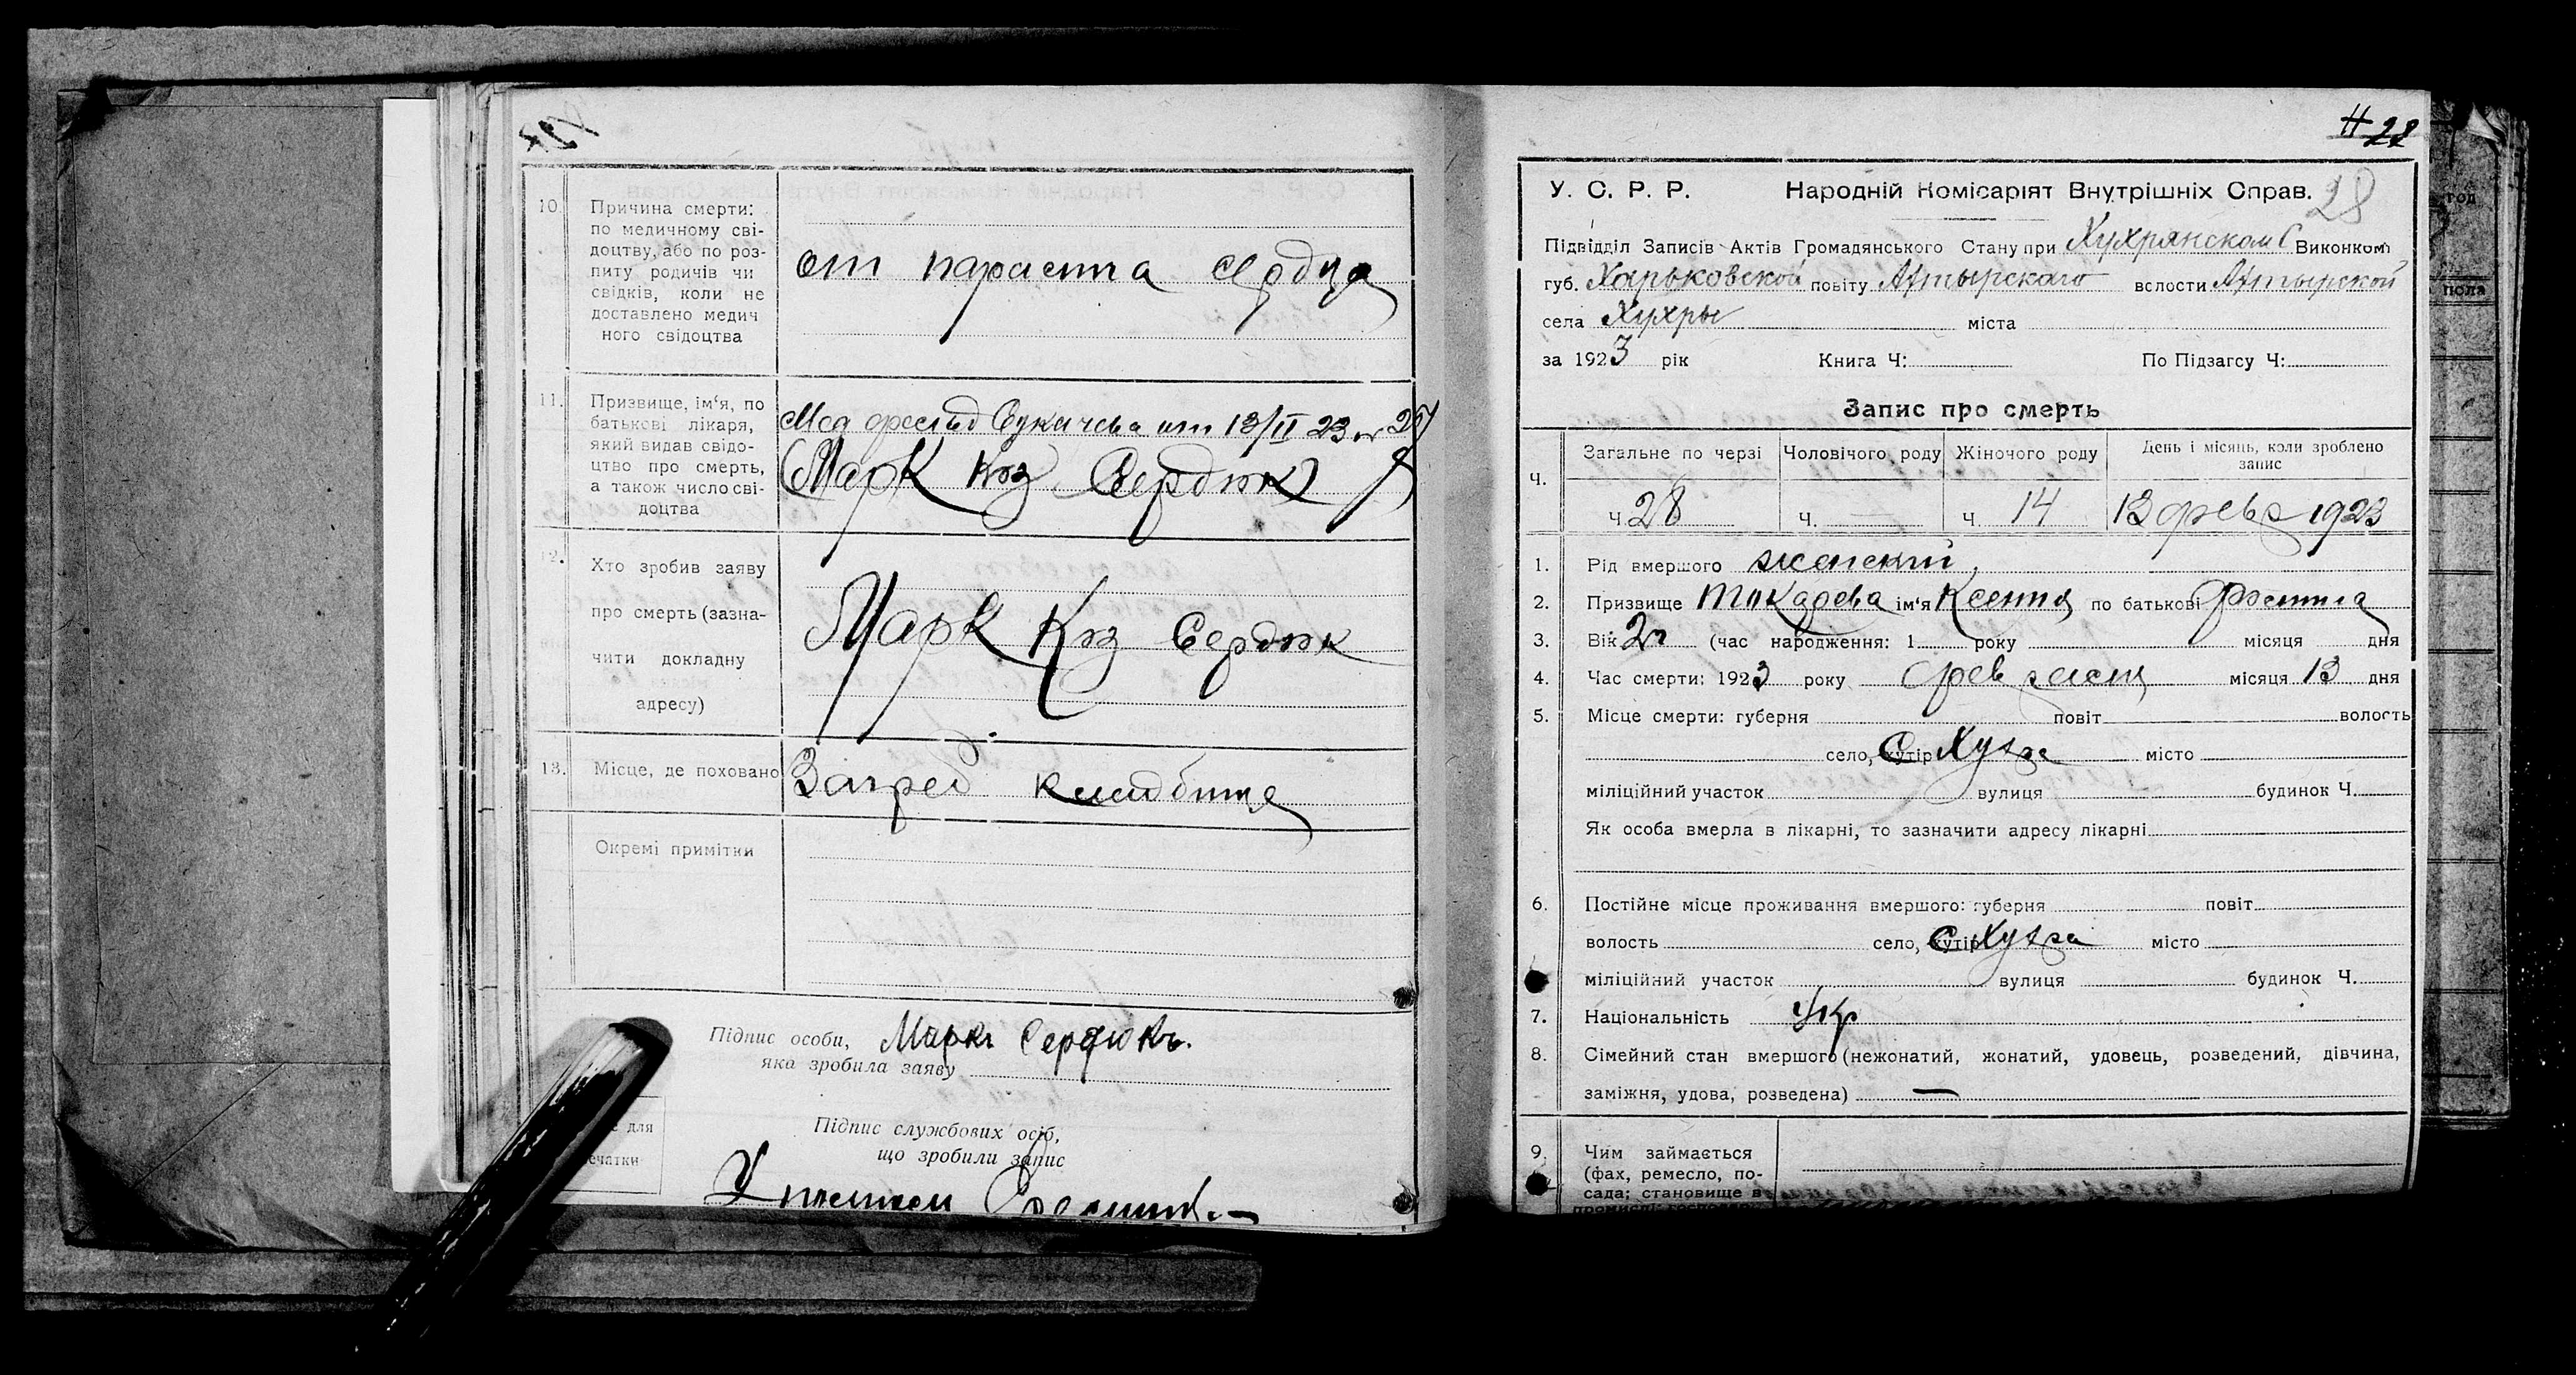 10. Причина смерти:
по медичному сві-
доцтву, або по роз-
питу родичів чи
свідків, коли не
доставлено медич
ного свідоцтва
от параста сердца
11. Призвище, ім'я, по
батькові лікаря,
який видав свідо-
цтво про смерть,
а також число сві-
доцтва
от 13/II 23
Марк Сердюк
12. Хто зробив заяву
про смерть (зазна-
чити докладну
адресу)
Марк Сердюк
13. Місце, де поховано
Загреб кладбище
Окремі примітки
Підпис особи,
яка зробила заяву
Маркъ Сердюкъ.
для
ечатки
Підпис службових осіб,
що зробили запис
28
У. С. Р. Р. Народній Комісаріят Внутрішніх Справ.
28
Підвідділ Записів Актів Громадянського Стану при Хухрянском С Виконком
губ. Харьковской повіту Ахтырского волости Ахтырской
села Хухры міста
за 1923 рік Книга Ч: По Підзагсу Ч:
Запис про смерть
Ч. Загальне по черзі Чоловічого роду Жіночого роду День і місяць, коли зроблено
запис
Ч. 28 Ч. — Ч. 14 13 февр 1923
1. Рід вмершого женский
2. Призвище Токарева ім'я Ксения по батькові
3. Вік 2г (час народження: 1 року місяця дня
4. Час смерти: 1923 року фев місяця 13 дня
5. Місце смерти: губерня повіт волость
село, хутір С Хухра місто
міліційний участок вулиця будинок Ч.
Як особа вмерла в лікарні, то зазначити адресу лікарні
6. Постійне місце проживання вмершого: губерня повіт
волость село, хутір С Хухра місто
міліційний участок вулиця будинок Ч.
7. Національність Укр
8. Сімейний стан вмершого (нежонатий, жонатий, удовець, розведений, дівчина,
заміжня, удова, розведена) —
9. Чим займається
(фах, ремесло, по-
сада; становище в